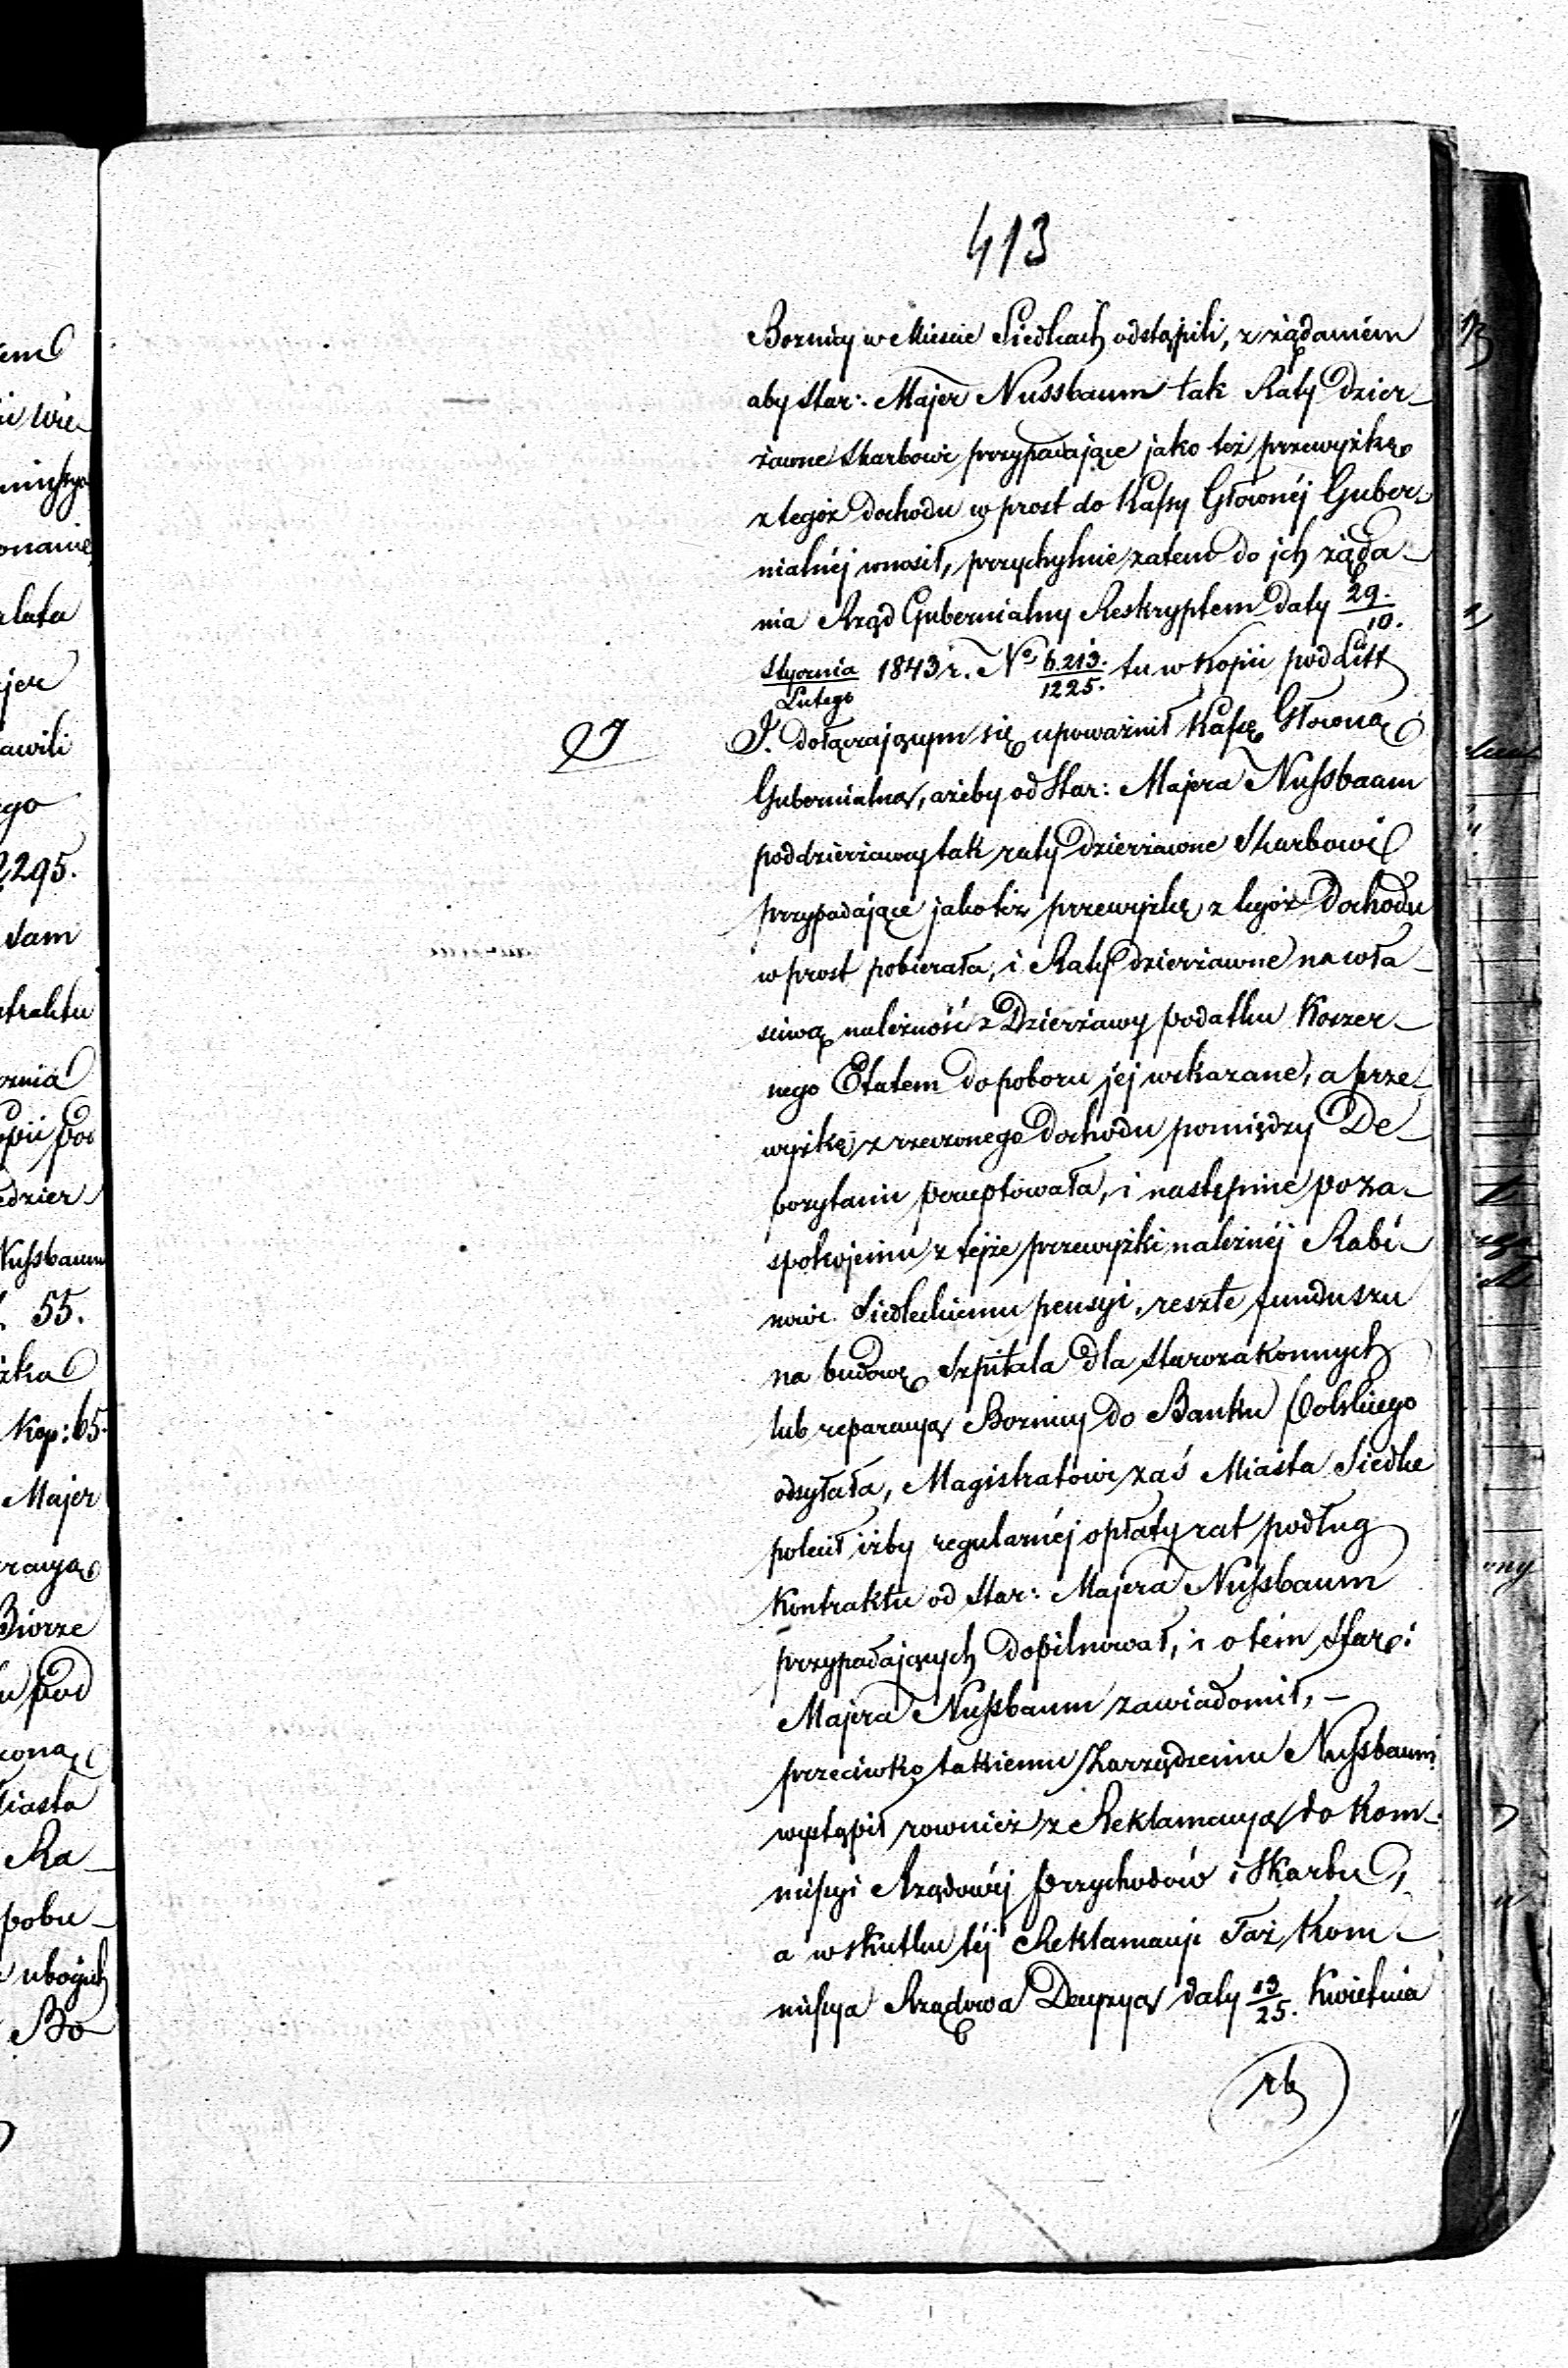 413
Boznicy w Miescie Siedlcach odstąpili, z żądaniem
aby Star: Majer Nussbaum tak Raty dzier-
żawne Skarbowi przypadające jako też przewyżkę
z tegoż dochodu w prost do Kassy Głównéj Guber-
nialnéj wnosił, przychylnie zatem do ich żąda-
nia Rząd Gubernialny Reskryptem daty 29./10.
Stycznia/Lutego 1843 r. No 6.213./1225. tu w Kopii pod Litt
J. dołączającym się upoważnił Kassę Głowną
Gubernialną, ażeby od Star: Majera Nussbaum
poddzierżawcy tak raty dzierżawne Skarbowi
przypadające jako też przewyżkę z tegoż Dochodu
w prost pobierała, i Raty dzierżawne na wła-
sciwą należność z Dzierżawy podatku Koszer-
nego Etatem do poboru jej wskazane, a prze-
wyżkę z rzeczonego dochodu pomiędzy De-
pozytami perceptowała, i następnie po za-
spokojeniu z tejże przewyżki należnéj Rabi-
nowi Siedleckiemu pensyi, resztę funduszu
na budowę Szpitala dla Starozakonnych
lub reparacyą Boznicy do Banku Polskiego
odsyłała, Magistratowi zaś Miasta Siedlec
polecił iżby regularnéj opłaty rat podług
Kontraktu od Star: Majera Nussbaum
przypadających dopilnował, i o tém Star:
Majera Nussbaum zawiadomił, -
przeciwko takiemu Zarządzeniu Nussbaum
wystąpił rownież z Reklamacyą do Kom-
missyi Rządowéj Przychodów i Skarbu,
a w skutku téj Reklamacyi Taż Kom-
missya Rządowa Decyzyą daty 13/25. Kwietnia
rb
2295.
sam
Nussbaum
55.
Kop: 65.
Majer
pod
Miasta
Ra-
pobu-
ubogich
Bo